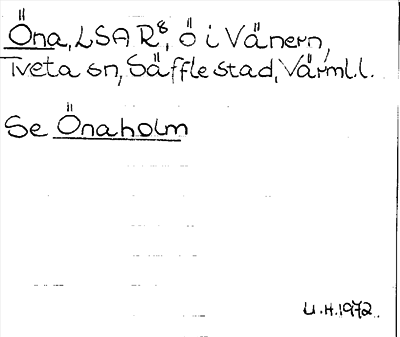 Öna, LSA R⁸, ö i Vänern,
Tveta sn, Säffle stad, Värml.l.
Se Önaholm
U.H.1972.